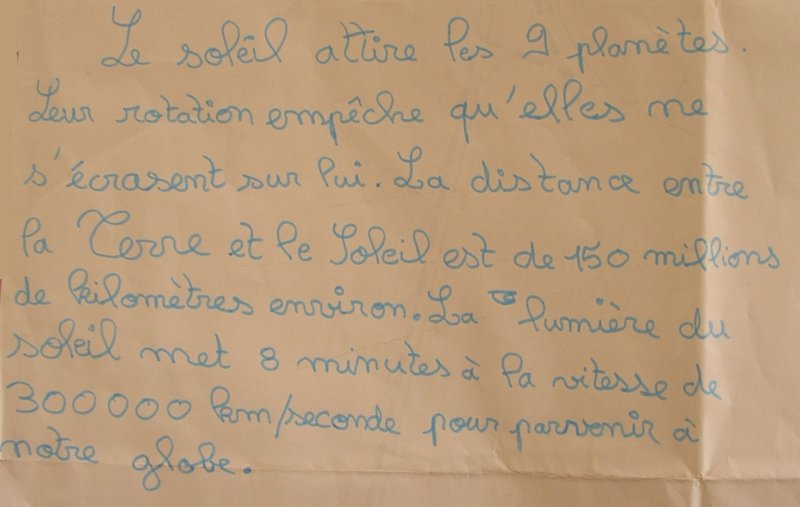 Le soleil attire les 9 planètes.
Leur rotation empêche qu'elles ne
s'écrasent sur lui. La distance entre
la Terre et le Soleil est de 150 millions
de kilomètres environ. La lumière du
soleil met 8 minutes à la vitesse de
300000 km/seconde pour parvenir à
notre globe.